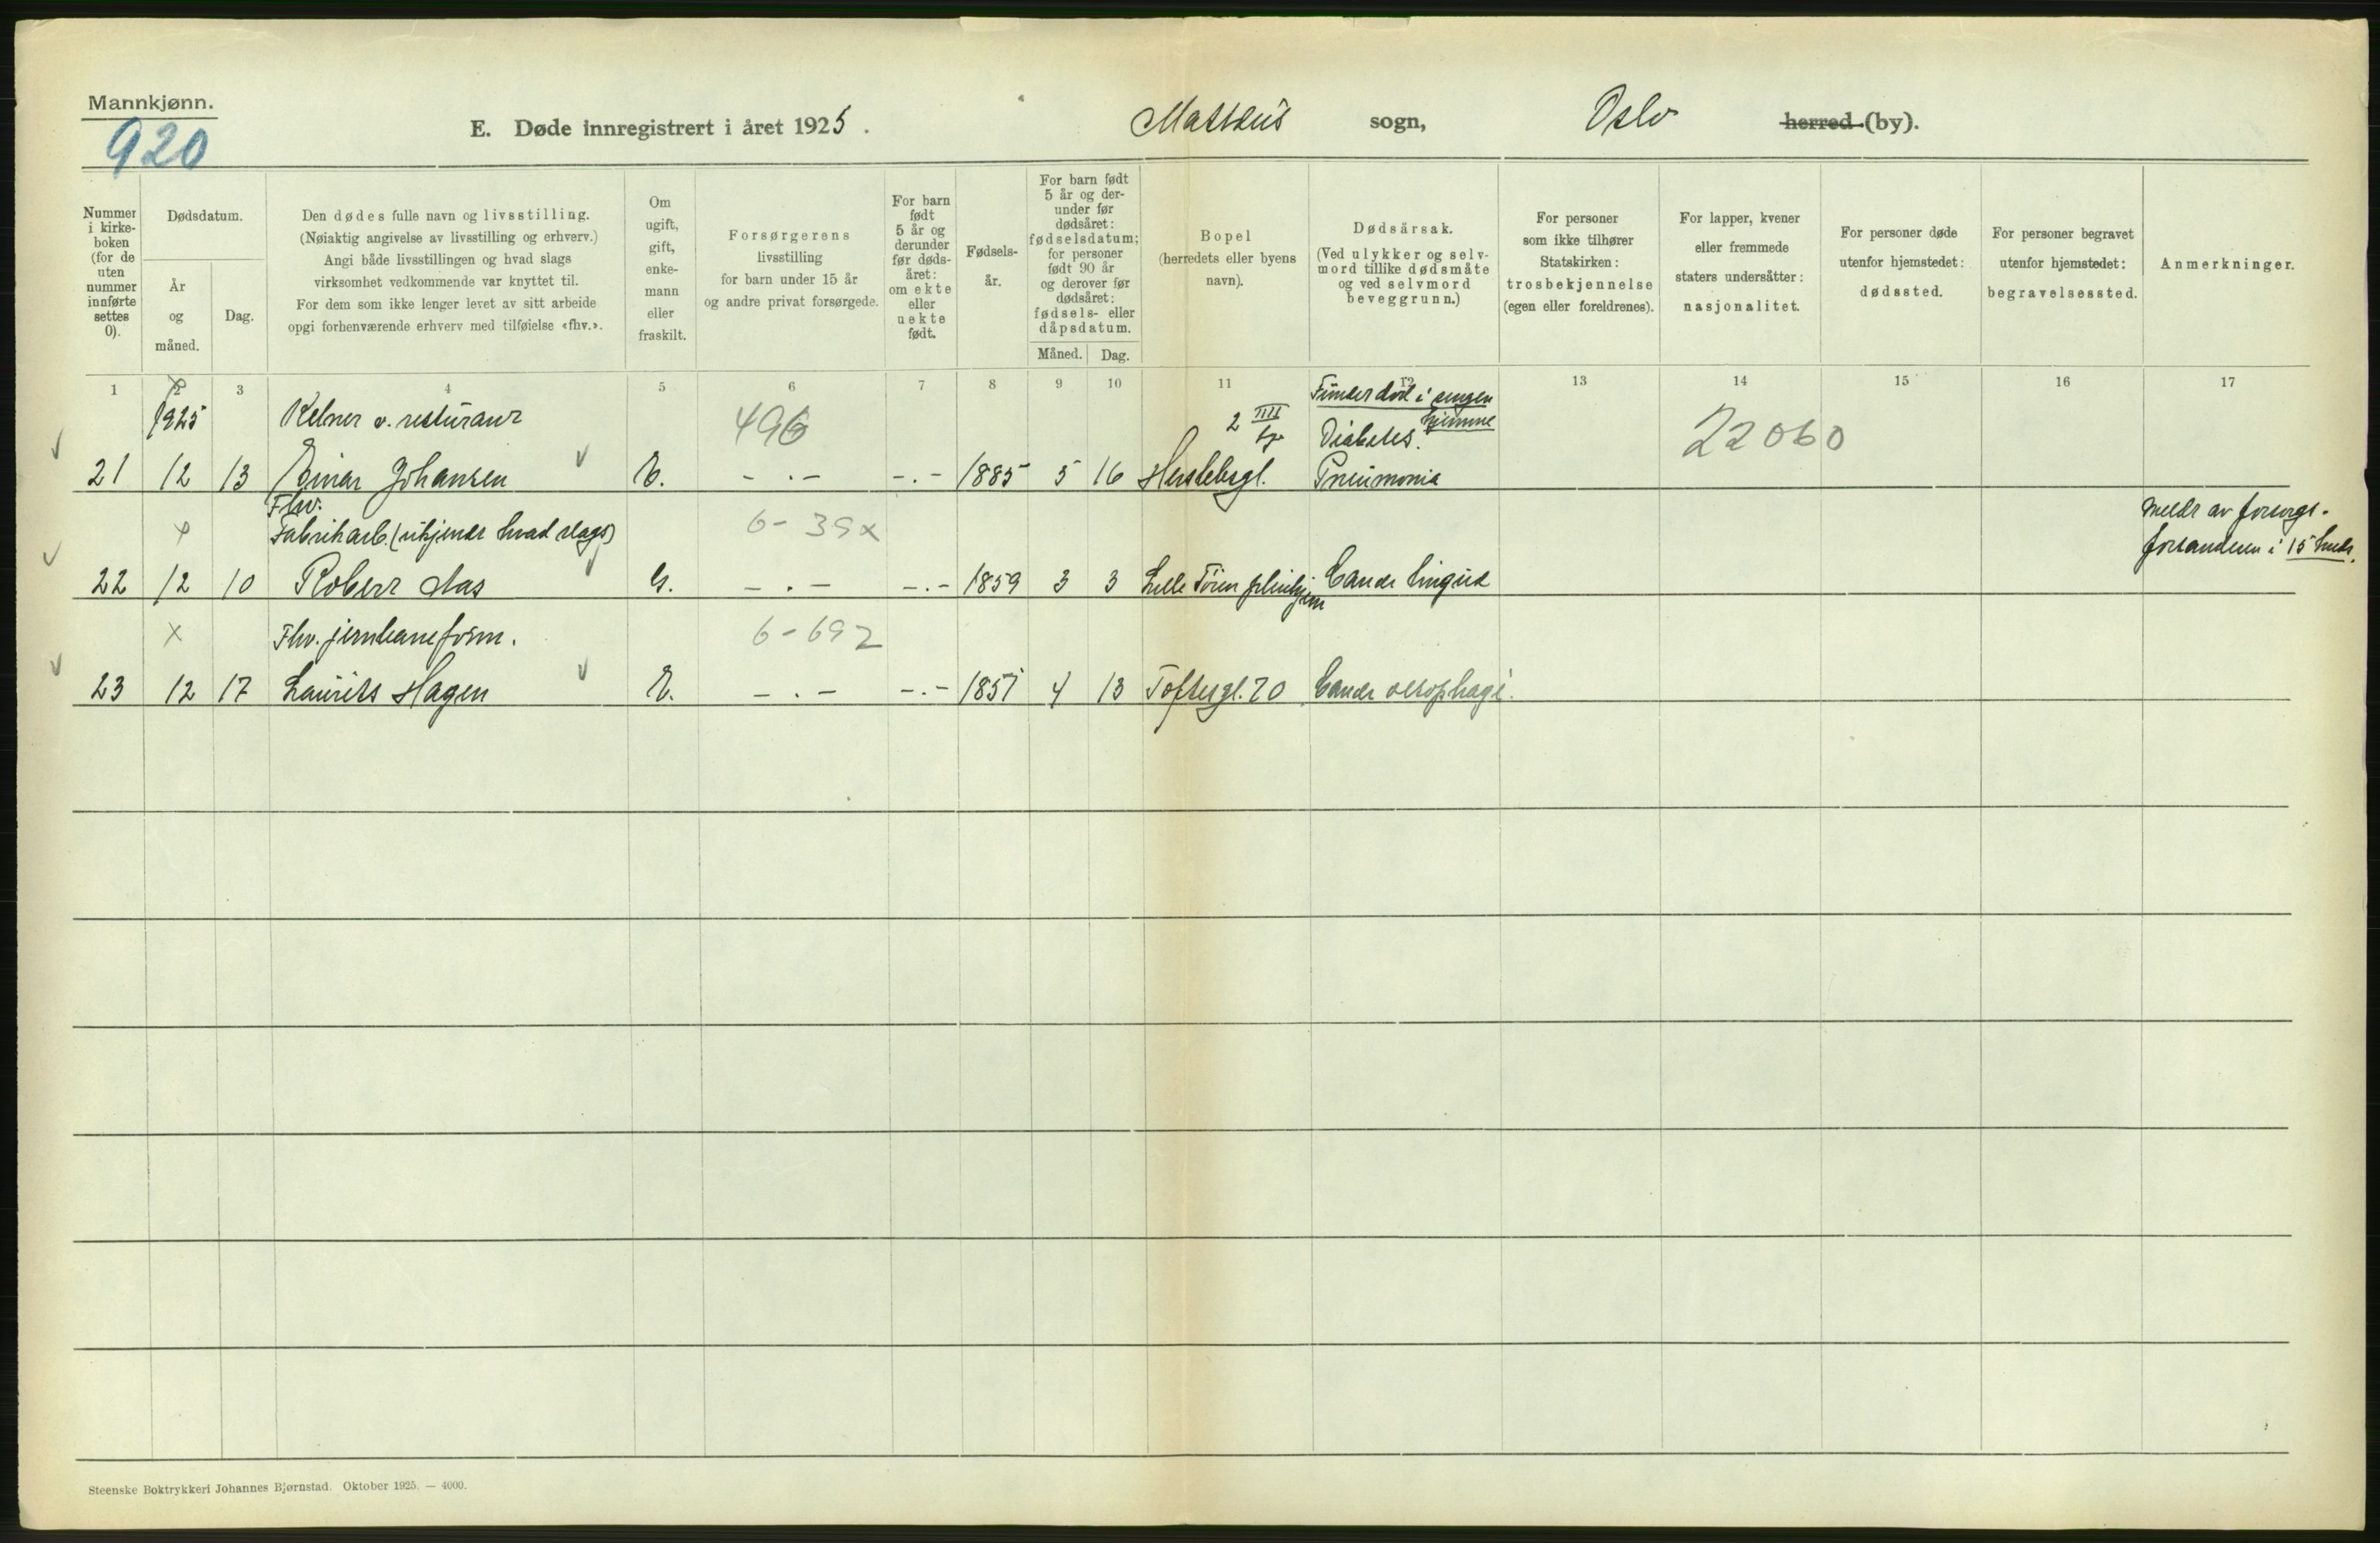 Mannkjønn.
920
E. Døde innregistrert i året 1925.
Matteus sogn, Oslo herred (by).
Nummer i kirke-boken (for de uten nummer innførte settes 0).
Dødsdatum.
År og måned.
Dag.
Den dødes fulle navn og livsstilling.
(Nøiaktig angivelse av livsstilling og erhverv.)
Angi både livsstillingen og hvad slags
virksomhet vedkommende var knyttet til.
For dem som ikke lenger levet av sitt arbeide
opgi forhenværende erhverv med tilføielse «fhv.».
Om ugift, gift, enke-mann eller fraskilt.
Forsørgerens
livsstilling
for barn under 15 år
og andre privat forsørgede.
For barn født 5 år og derunder før døds-året: om ekte eller uekte født.
Fødsels-år.
For barn født 5 år og der-under før dødsåret: fødselsdatum; for personer født 90 år og derover før dødsåret: fødsels- eller dåpsdatum.
Måned. Dag.
Bopel
(herredets eller byens
navn).
Dødsårsak.
(Ved ulykker og selv-
mord tillike dødsmåte
og ved selvmord
beveggrunn.)
For personer
som ikke tilhører
Statskirken:
trosbekjennelse
(egen eller foreldrenes).
For lapper, kvener
eller fremmede
staters undersåtter:
nasjonalitet.
For personer døde
utenfor hjemstedet:
dødssted.
For personer begravet
utenfor hjemstedet:
begravelsessted.
Anmerkninger.
1 2 3 4 5 6 7 8 9 10 11 12 13 14 15 16 17
1925 Kelner v. resturant 496 2 Funder død i sengen hjemme Diabetes. 22060
21 12 13 Einar Johansen - . - - . - 1885 5 16 Herslebsgt. Pneumonia
Fhv.
Fabrikarb. (ukjendt hvad slags) 6 - 39x Meldt av forsorgs-
forstanderen i 15 kreds.
22 12 10 Robert Aas G. - . - - . - 1859 3 3 Lille Tøien pleiehjem Cancer lingua
x Fhv. jernbaneform. 6 - 692
23 12 17 Laurits Hagen E. - . - - . - 1857 4 13 Toftesgt. 70 Cancer oesophagi.
Steenske Boktrykkeri Johannes Bjørnstad. Oktober 1925. — 4000.